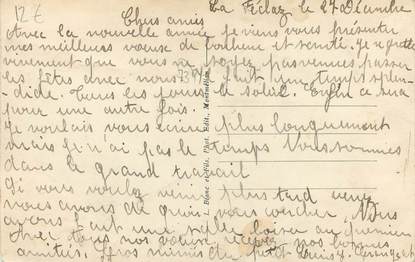 12€
La Féclaz le 27 Décembre
Chers amis
Avec la nouvelle année je viens vous présenter
mes meilleurs voeux de bonheur et santé. Je regrette
vivement que vous ne soyez pas venues passer
les fêtes avec nous il fait un temps splen-
dide. Tous les jours le soleil. Enfin ce sera
pour une autre fois.
Je voulais vous écrire plus longuement
mais je n'ai pas le temps nous sommes
dans le grand travail
Si vous voulez venir plus tard venez
nous avons de quoi vous coucher. Nous
avons fait une belle au premier
Avec tous nos voeux recevez nos bonnes
amitiés. petit Louis
L. Blanc et Fils, Phot. Édit., Montmélian